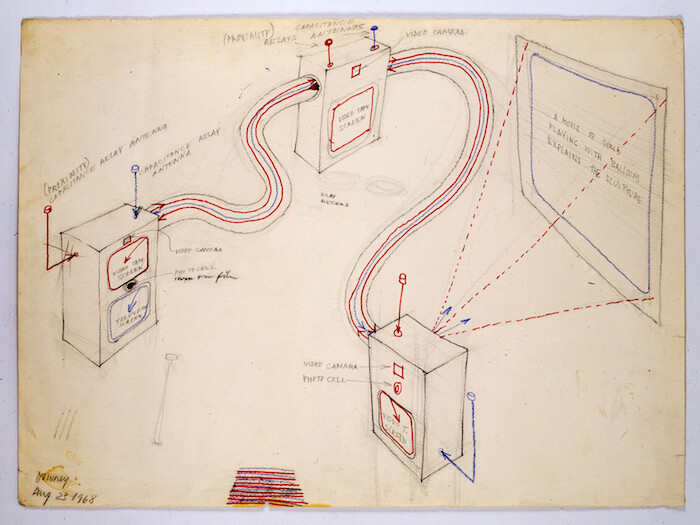 (PROXIMITY) CAPACITANCE
RELAYS ANTENNAS
VIDEO CAMERA
VIDEO TAPE
SCREEN
A MOVIE OF
PLAYING WITH BALLOONS
EXPLAINS THE SCULPTURE
(PROXIMITY)
CAPACITANCE RELAY ANTENNA
CAPACITANCE RELAY
ANTENNA
PLAY
RECORD
VIDEO CAMERA
VIDEO TAPE
SCREEN
PHOTO CELL
TELEVISION
SCREEN
VIDEO CAMARA
PHOTO CELL
VIDEO T.
SCREEN
Downey
Aug 23 1968